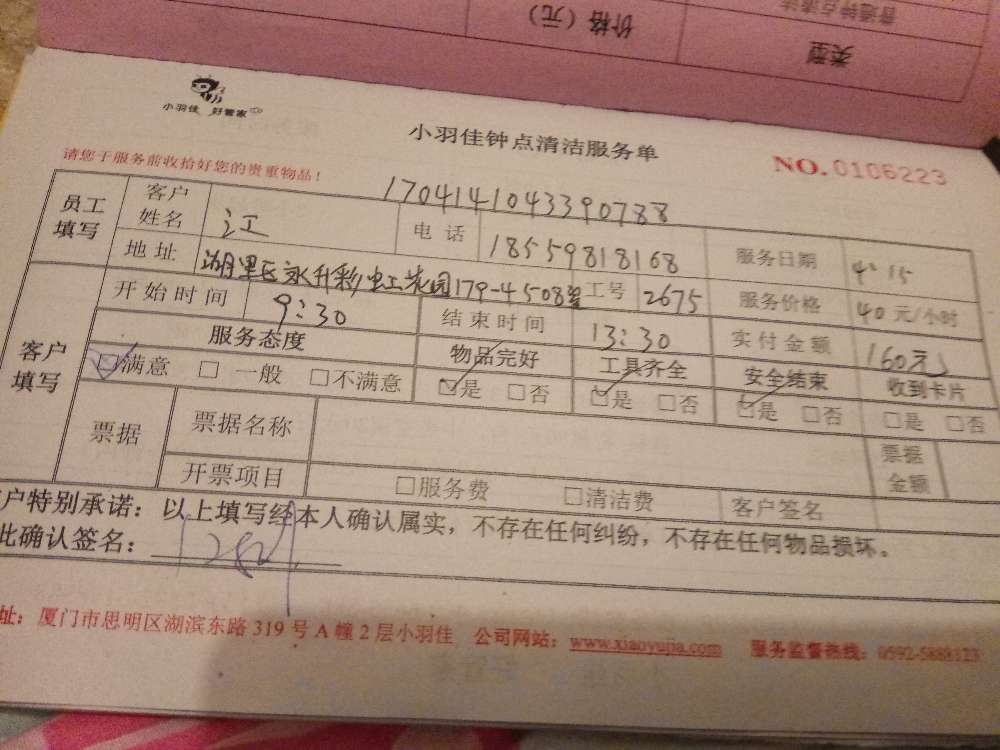 普通钟点清洁
价格（元）
类型
小羽佳 好管家
小羽佳钟点清洁服务单
NO. 0106223
请您于服务前收拾好您的贵重物品！
170414104339 0788
员工填写 客户姓名 江 电话 18559818168 服务日期 4:15
地址 湖里区永升彩虹花园179-4508室 工号 2675 服务价格 40元/小时
客户填写 开始时间 9:30 结束时间 13:30 实付金额 160元
服务态度 物品完好 工具齐全 安全结束 收到卡片
☑满意 □一般 □不满意 ☑是 □否 ☑是 □否 ☑是 □否 □是 □否
票据 票据名称 票据金额
开票项目 □服务费 □清洁费 客户签名
户特别承诺：以上填写经本人确认属实，不存在任何纠纷，不存在任何物品损坏。
此确认签名：
址：厦门市思明区湖滨东路319号A幢2层小羽佳 公司网站：www.xiaoyujia.com 服务监督热线：0592-5888123